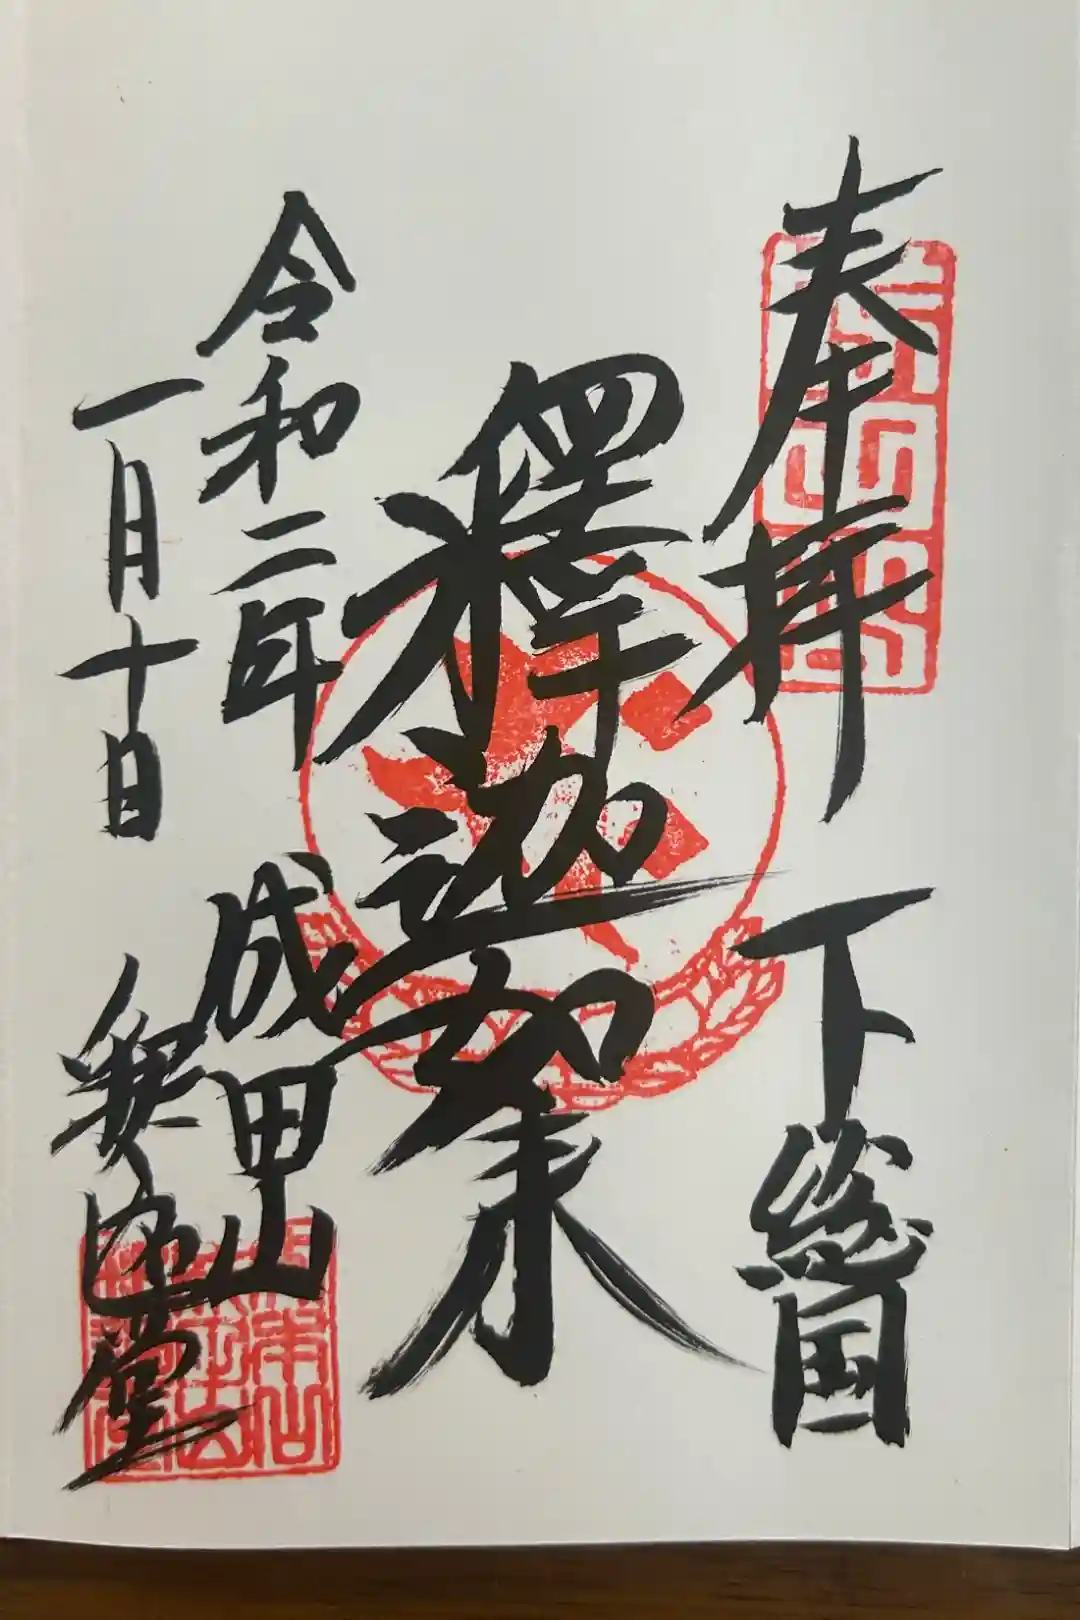 奉拝 下総国
釋迦如来
令和二年 成田山
一月十日 釋迦堂